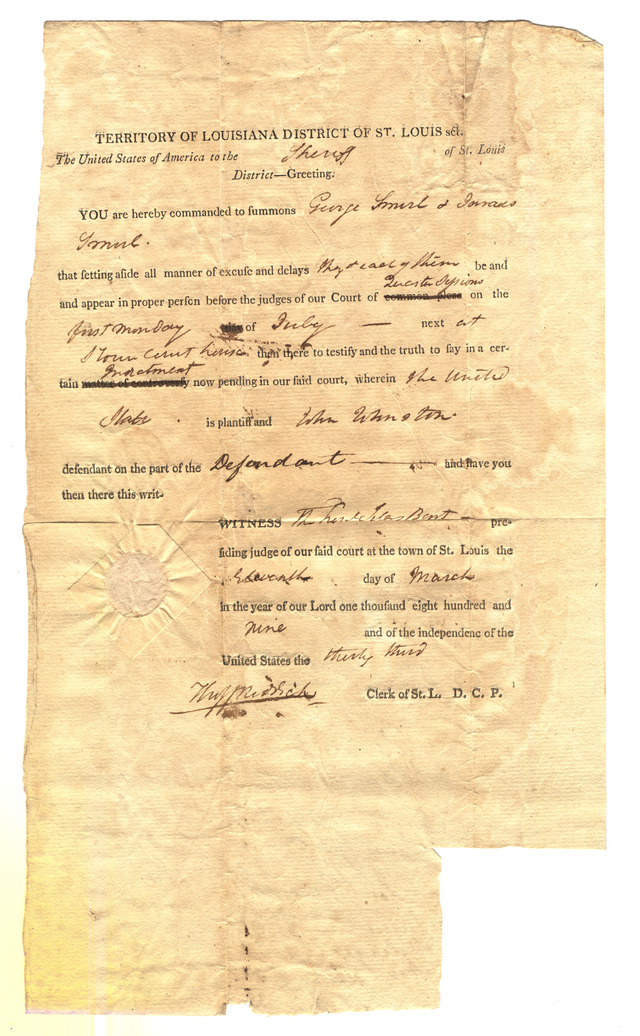 TERRITORY OF LOUISIANA DISTRICT OF ST. LOUIS sct.
The United States of America to the Sheriff of St. Louis
District—Greeting.
YOU are hereby commanded to summons George Smirl &
Smirl.
that setting aside all manner of excuse and delays they & each of them be and
Quarter Sessions
and appear in proper person before the judges of our Court of common pleas on the
first monday of July — next at
Court house then there to testify and the truth to say in a cer-
Indictment
tain matter of controversy now pending in our said court, wherein the United
State is plaintiff and John Whinston
defendant on the part of the Defendant — and have you
then there this writ.
WITNESS pre-
siding judge of our said court at the town of St. Louis the
Eleventh day of March
in the year of our Lord one thousand eight hundred and
nine and of the independenc of the
United States the thirty third
Clerk of St. L. D. C. P.